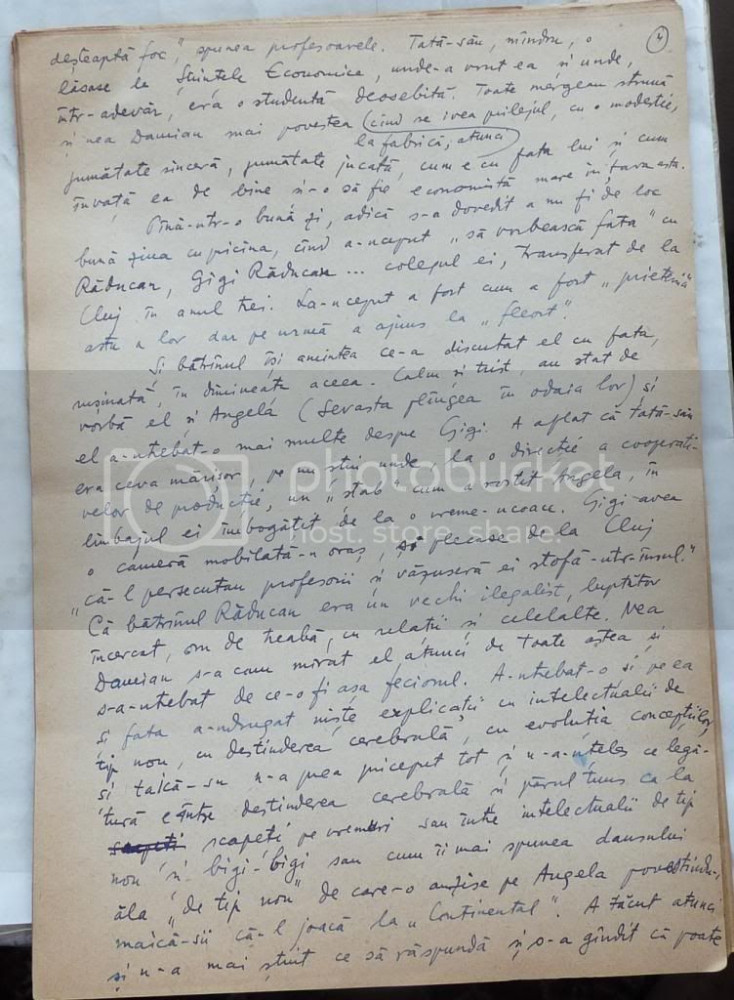 4
deșteaptă foc," spunea profesoarele. Tată-său, mîndru, o
lăsase la Științele Economice, unde-a vrut ea și unde,
într-adevăr, era o studentă deosebită. Toate mergeau strună
și nea Damian mai povestea (cînd se ivea prilejul, cu o modestie,
la fabrică, atunci
jumătate sinceră, jumătate jucată, cum e cu fata lui și cum
învață ea de bine și-o să fie economistă mare în țara asta.
Pînă-ntr-o bună zi, adică s-a dovedit a nu fi de loc
bună ziua cu pricina, cînd a-nceput „să vorbească fata" cu
Răducan, Gigi Răducan... colegul ei, transferat de la
Cluj în anul trei. La-nceput a fost cum a fost „prietenia"
asta a lor dar pe urmă a ajuns la „fleort".
Și bătrînul își amintea ce-a discutat el cu fata,
rușinată, în dimineața aceea. Calm și trist, au stat de
vorbă el și Angela (Sevasta plîngea în odaia lor) și
el a-ntrebat-o mai multe despre Gigi. A aflat că tată-său
era ceva mărișor, pe nu știu unde, la o direcție a cooperati-
velor de producție, un „ștab" cum a rostit Angela, în
limbajul ei îmbogățit de la o vreme-ncoace. Gigi avea
o cameră mobilată-n oraș, plecase de la Cluj
"că-l persecutau profesorii și văzuseră ei stofă-ntr-însul."
Că bătrînul Răducan era un vechi ilegalist, luptător
încercat, om de treabă, cu relații și celelalte. Nea
Damian s-a cam mirat el atunci de toate astea și
s-a-ntrebat de ce-o fi așa feciorul. A-ntrebat-o și pe ea
și fata a-ndrugat niște explicații cu intelectualii de
tip nou, cu destinderea cerebrală, cu evoluția concepțiilor
și taică-su n-a prea priceput tot și n-a-nțeles ce legă-
tură e între destinderea cerebrală și părul tuns ca la
scapeți pe vremuri sau între intelectualii de tip
nou și bigi-bigi sau cum îi mai spunea dansului
ăla „de tip nou" de care-o auzise pe Angela povestindu-i
maică-sii că-l joacă la „Continental". A tăcut atunci
și n-a mai știut ce să răspundă și s-a gîndit că poate
photobucket
host. store. share.